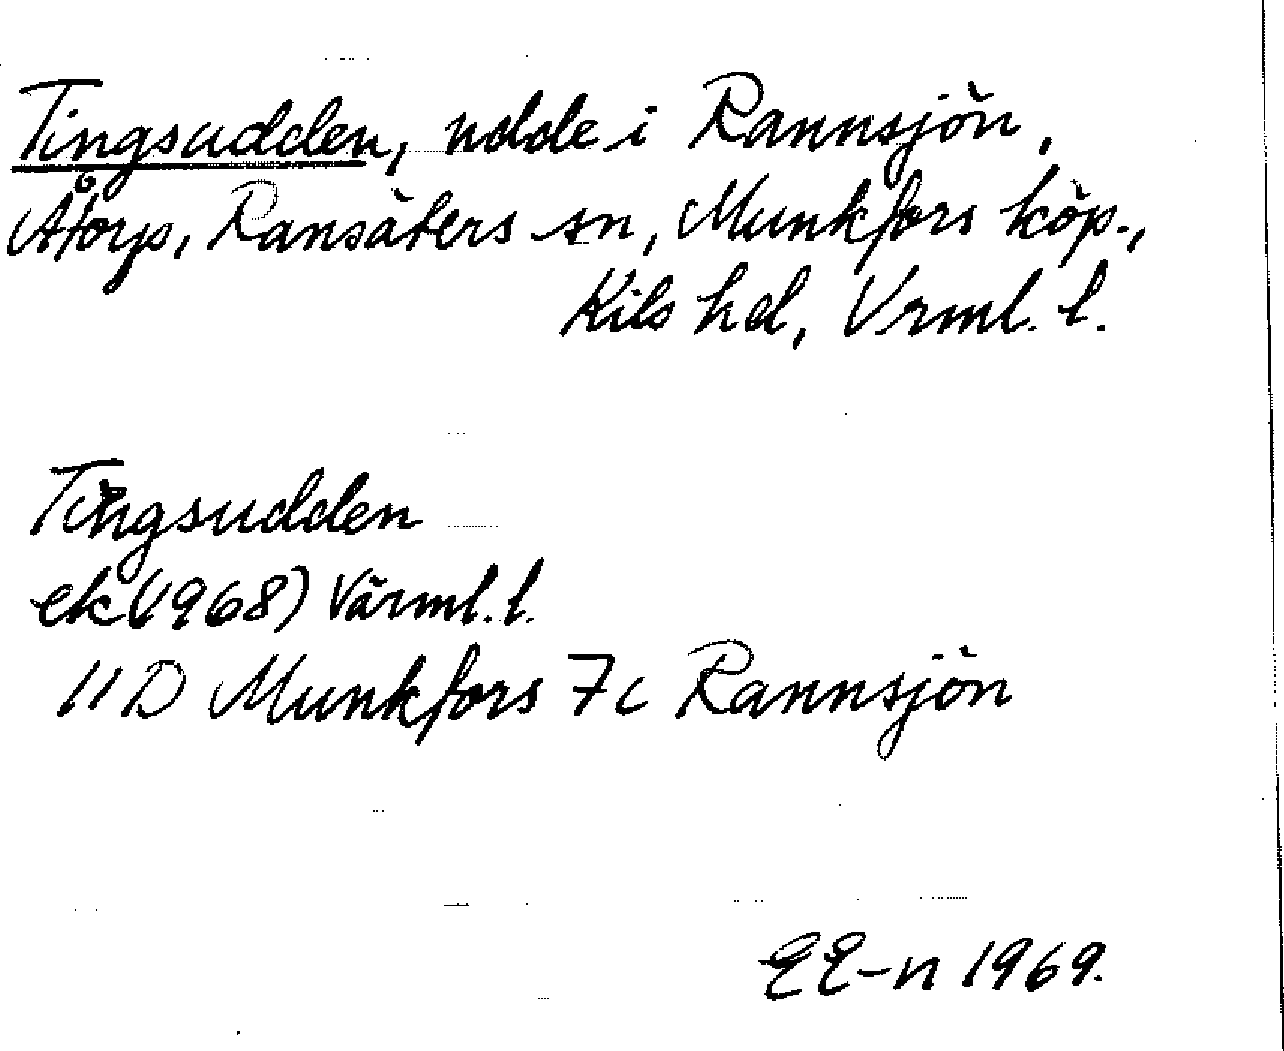 Tingsudden, udde i Rannsjön,
Åtorp, Ransäters sn, Munkfors köp.,
Kils hd, Vrml. l.
Tingsudden
ek (1968) Värml. l.
11 D Munkfors 7c Rannsjön
EE-n 1969.